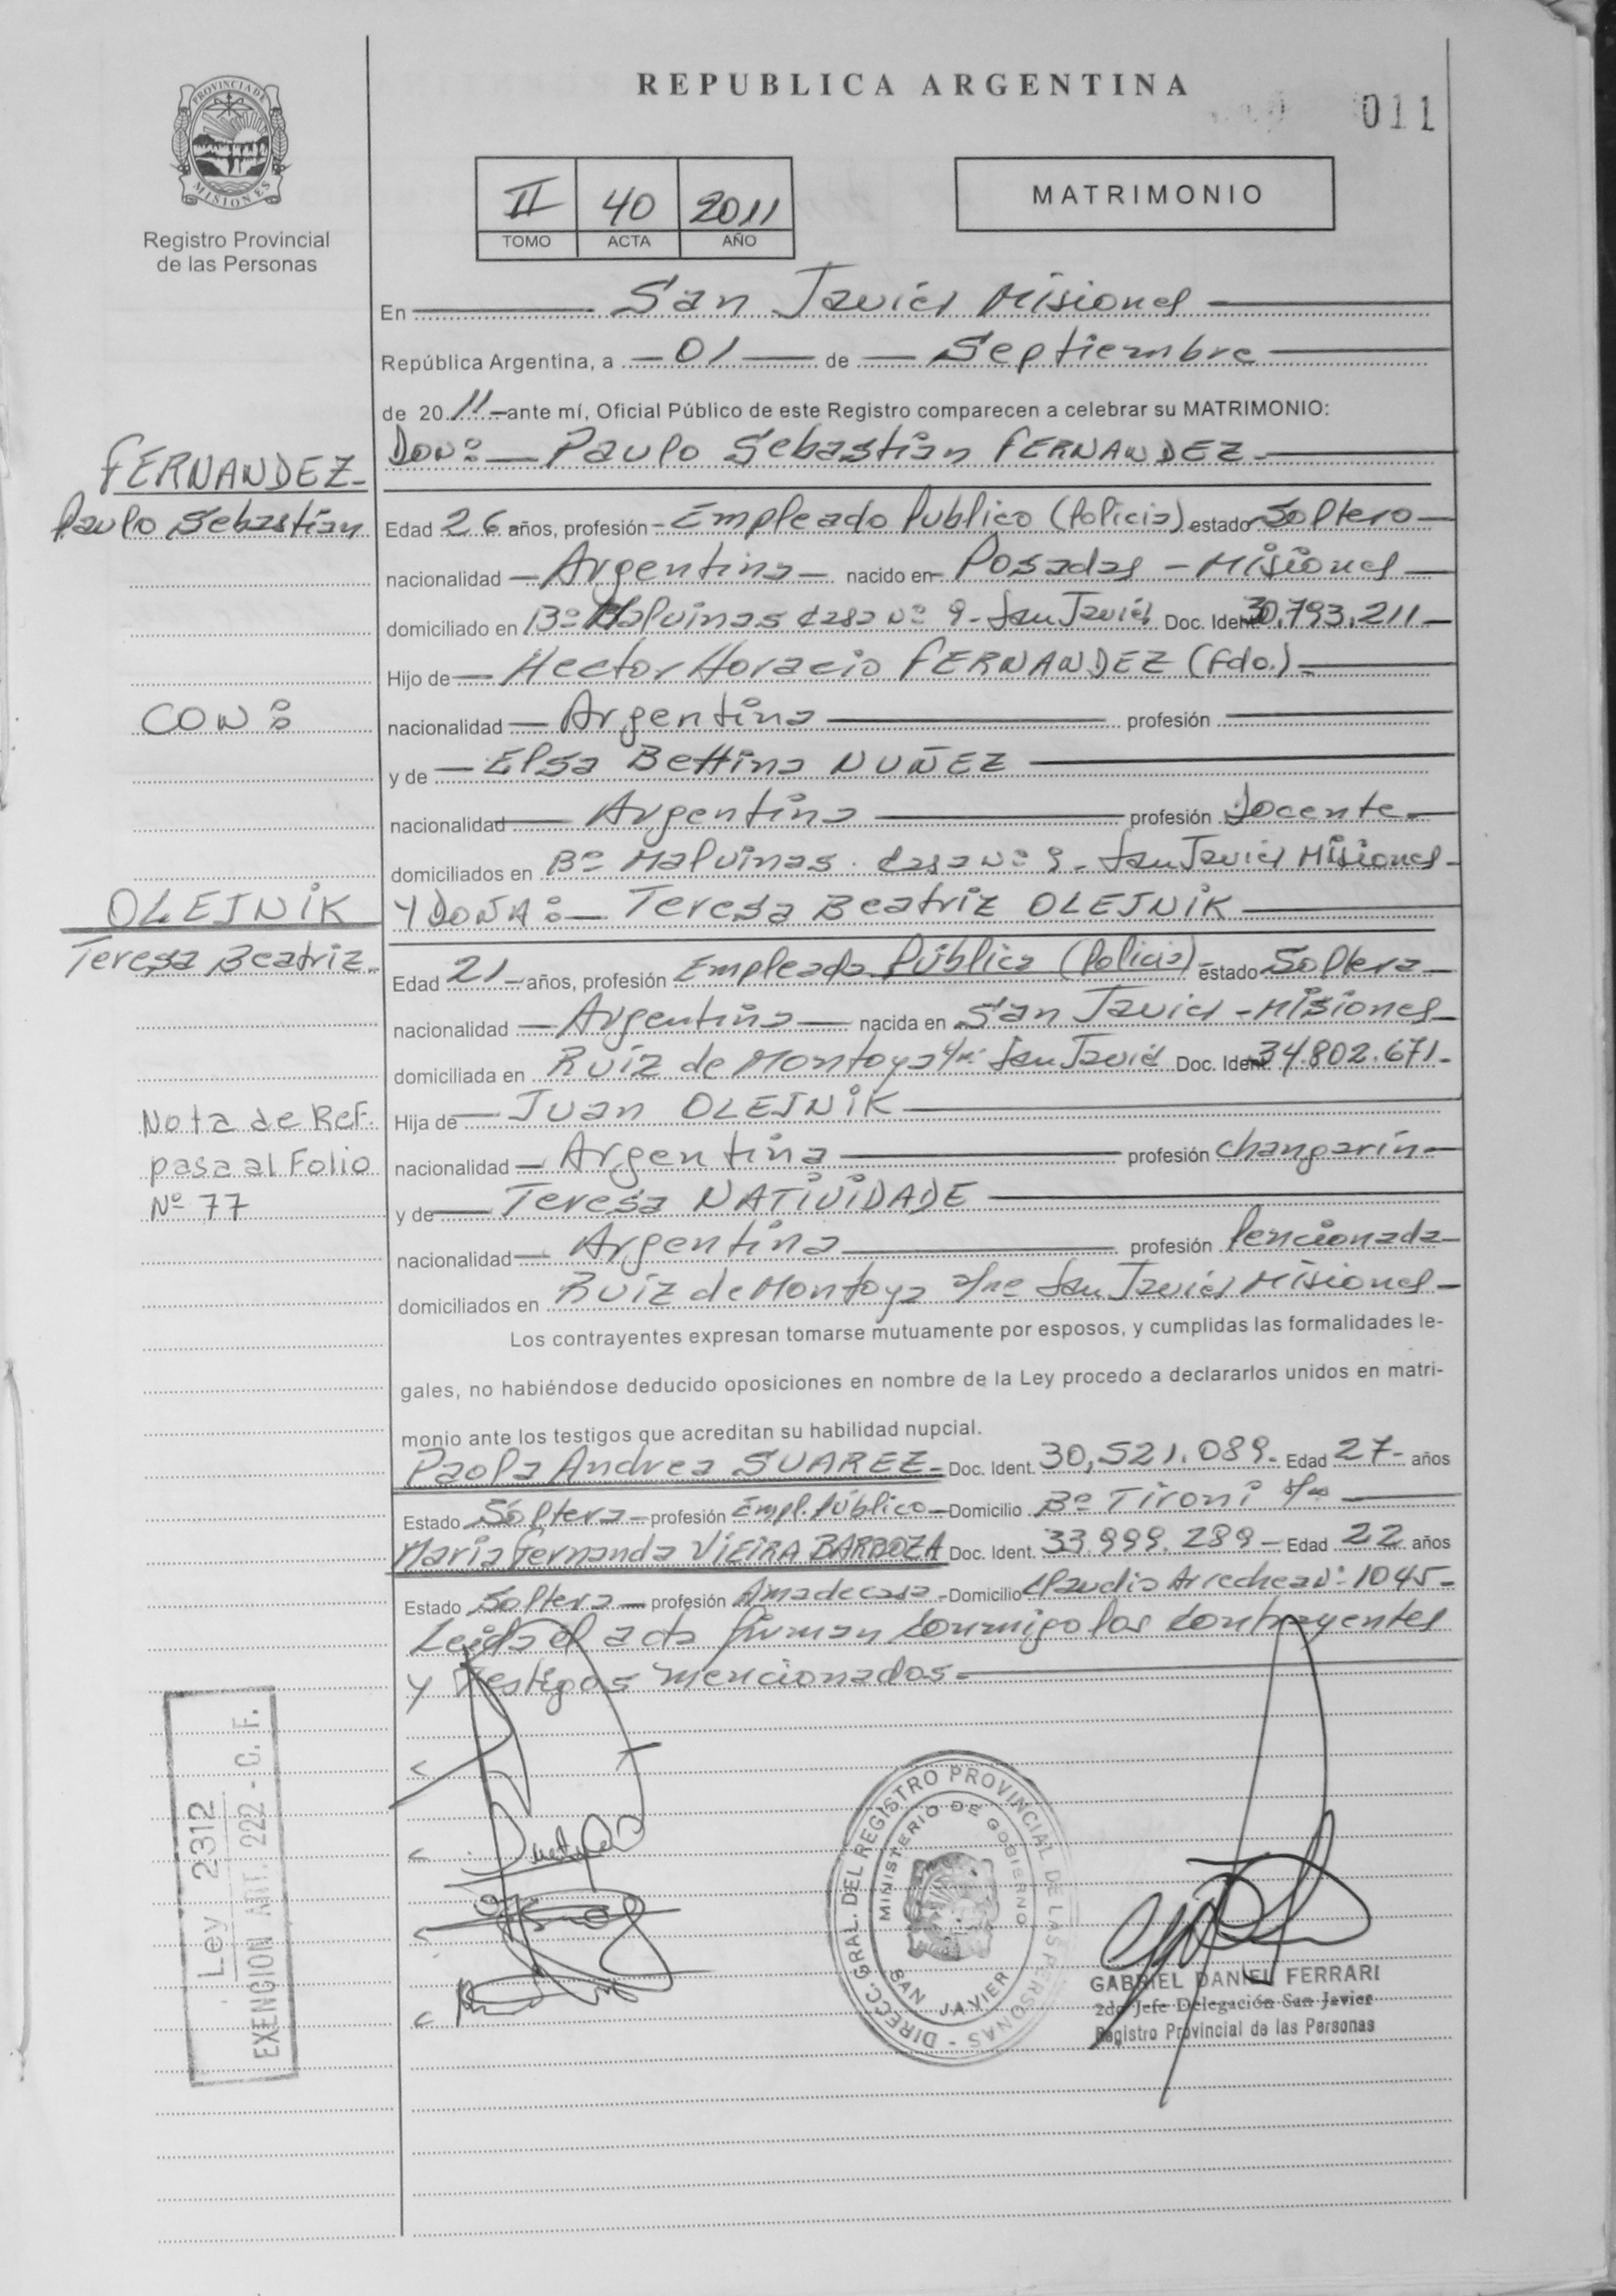 REPUBLICA ARGENTINA
011
PROVINCIA DE
MISIONES
Registro Provincial
de las Personas
II 40 2011
TOMO ACTA AÑO
MATRIMONIO
En San Javier Misiones
República Argentina, a 01 de Septiembre
de 20 11 ante mí, Oficial Público de este Registro comparecen a celebrar su MATRIMONIO:
FERNANDEZ
Paulo Sebastián
DON: Paulo Sebastián FERNANDEZ
Edad 26 años, profesión Empleado Publico (Policia) estado Soltero
nacionalidad Argentina nacido en Posadas - Misiones
domiciliado en Bº Malvinas casa Nº 9 - San Javier Doc. Ident. 30.793.211
Hijo de Hector Horacio FERNANDEZ (Fdo.)
CON:
nacionalidad Argentina profesión
y de Elsa Bettina NUÑEZ
nacionalidad Argentina profesión Docente
domiciliados en Bº Malvinas casa Nº 9 - San Javier Misiones
OLEJNIK
Teresa Beatriz
Y DOÑA: Teresa Beatriz OLEJNIK
Edad 21 años, profesión Empleada Pública (Policia) estado Soltera
nacionalidad Argentina nacida en San Javier - Misiones
domiciliada en Ruiz de Montoya s/nº San Javier Doc. Ident. 34.802.671
Hija de Juan OLEJNIK
Nota de Ref.
pasa al Folio
Nº 77
nacionalidad Argentina profesión changarín
y de Teresa NATIVIDADE
nacionalidad Argentina profesión Pencionada
domiciliados en Ruiz de Montoya s/nº San Javier Misiones
Los contrayentes expresan tomarse mutuamente por esposos, y cumplidas las formalidades le-
gales, no habiéndose deducido oposiciones en nombre de la Ley procedo a declararlos unidos en matri-
monio ante los testigos que acreditan su habilidad nupcial.
Paola Andrea SUAREZ Doc. Ident. 30,521.089 Edad 27 años
Estado Soltera profesión Empl. Público Domicilio Bº Tironi s/nº
Maria Fernanda VIEIRA BARBOZA Doc. Ident. 33.999.289 Edad 22 años
Estado Soltera profesión Ama de casa Domicilio Claudio Arrechea Nº 1045
Leida el acta firman conmigo los contrayentes
y testigos mencionados
Ley 2312
EXENCION ART. 222 - C. F.
DIRECC. GRAL. DEL REGISTRO PROVINCIAL DE LAS PERSONAS
MINISTERIO DE GOBIERNO
SAN JAVIER
GABRIEL DANIEL FERRARI
2do Jefe Delegación San Javier
Registro Provincial de las Personas